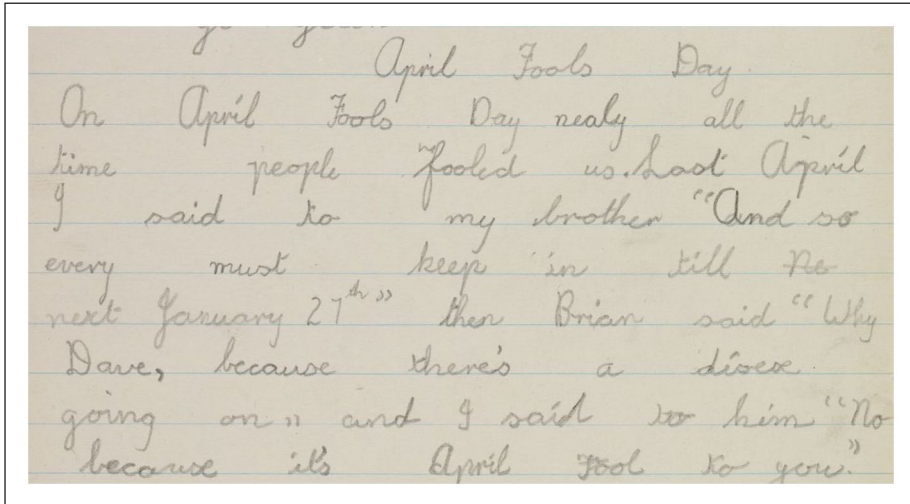 April Fools Day.
On April Fools Day nealy all the
time people fooled us. Last April
I said to my brother "And so
every must keep in till ne
next January 27th" then Brian said "Why
Dave, because there's a disese
going on" and I said to him "No
because it's April Fool to you."